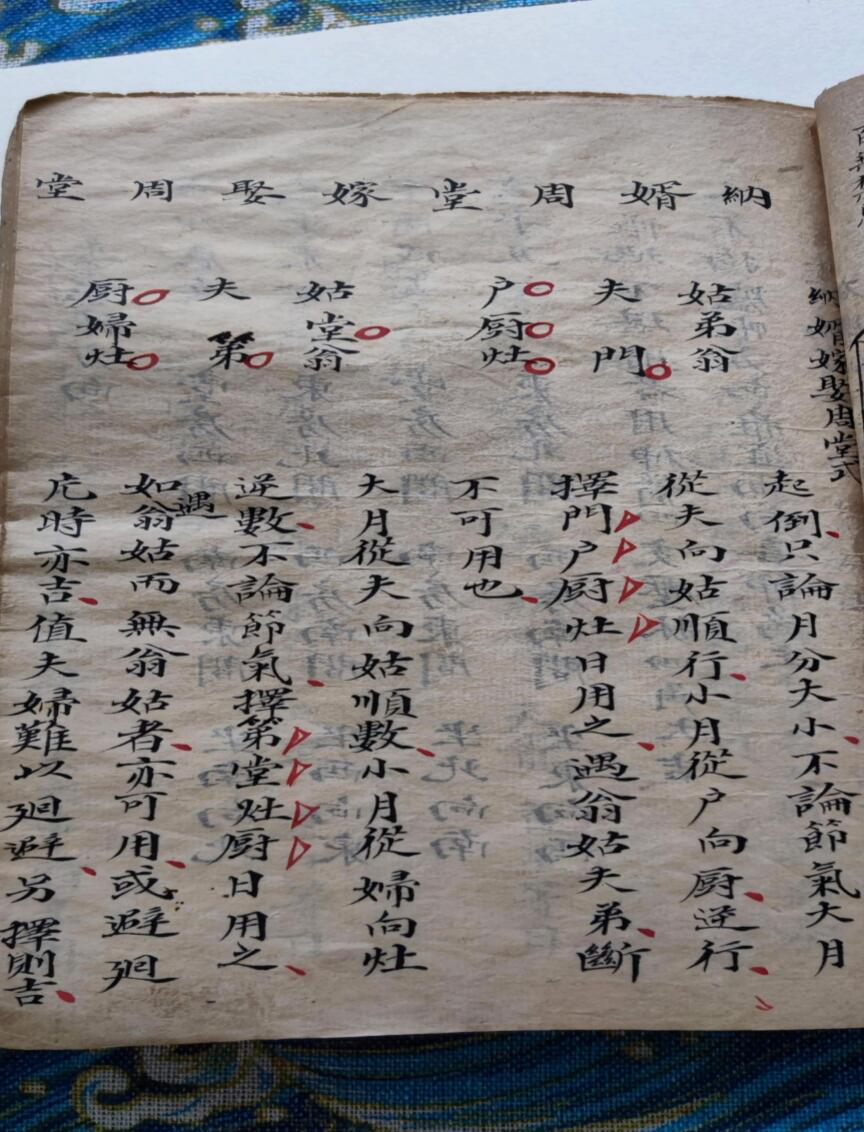 納婿嫁娶周堂式
納婿周堂嫁娶周堂
姑弟翁
夫門
户厨灶
姑堂翁
夫第
厨婦灶
起倒只論月分大小不論節氣大月
從夫向姑順行小月從户向厨逆行
擇門户厨灶日用之遇翁姑夫弟斷
不可用也
大月從夫向姑順數小月從婦向灶
逆數不論節氣擇第堂灶厨日用之
如遇翁姑而無翁姑者亦可用或避廻
片時亦吉值夫婦難以廻避另擇則吉